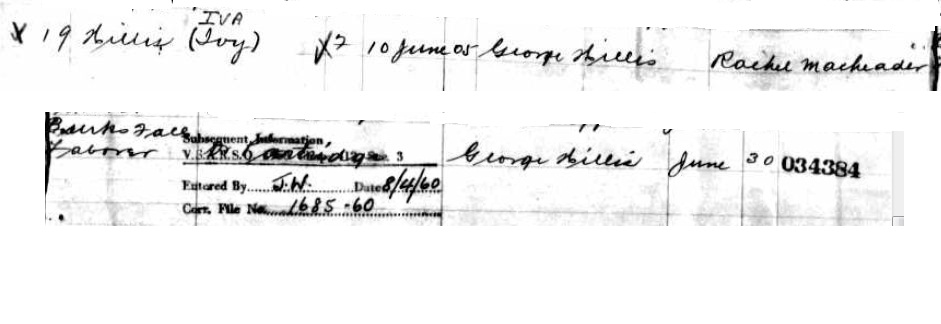 IVA
X 19 Hillis (Ivy) X7 10 June 05 George Hillis Rachel Macheader
Banks Fall Subsequent Information,
Laborer V.S. R.S.O. 3 George Hillis June 30 034384
Entered By J.W. Date 8/4/60
Corr. File No. 1685-60